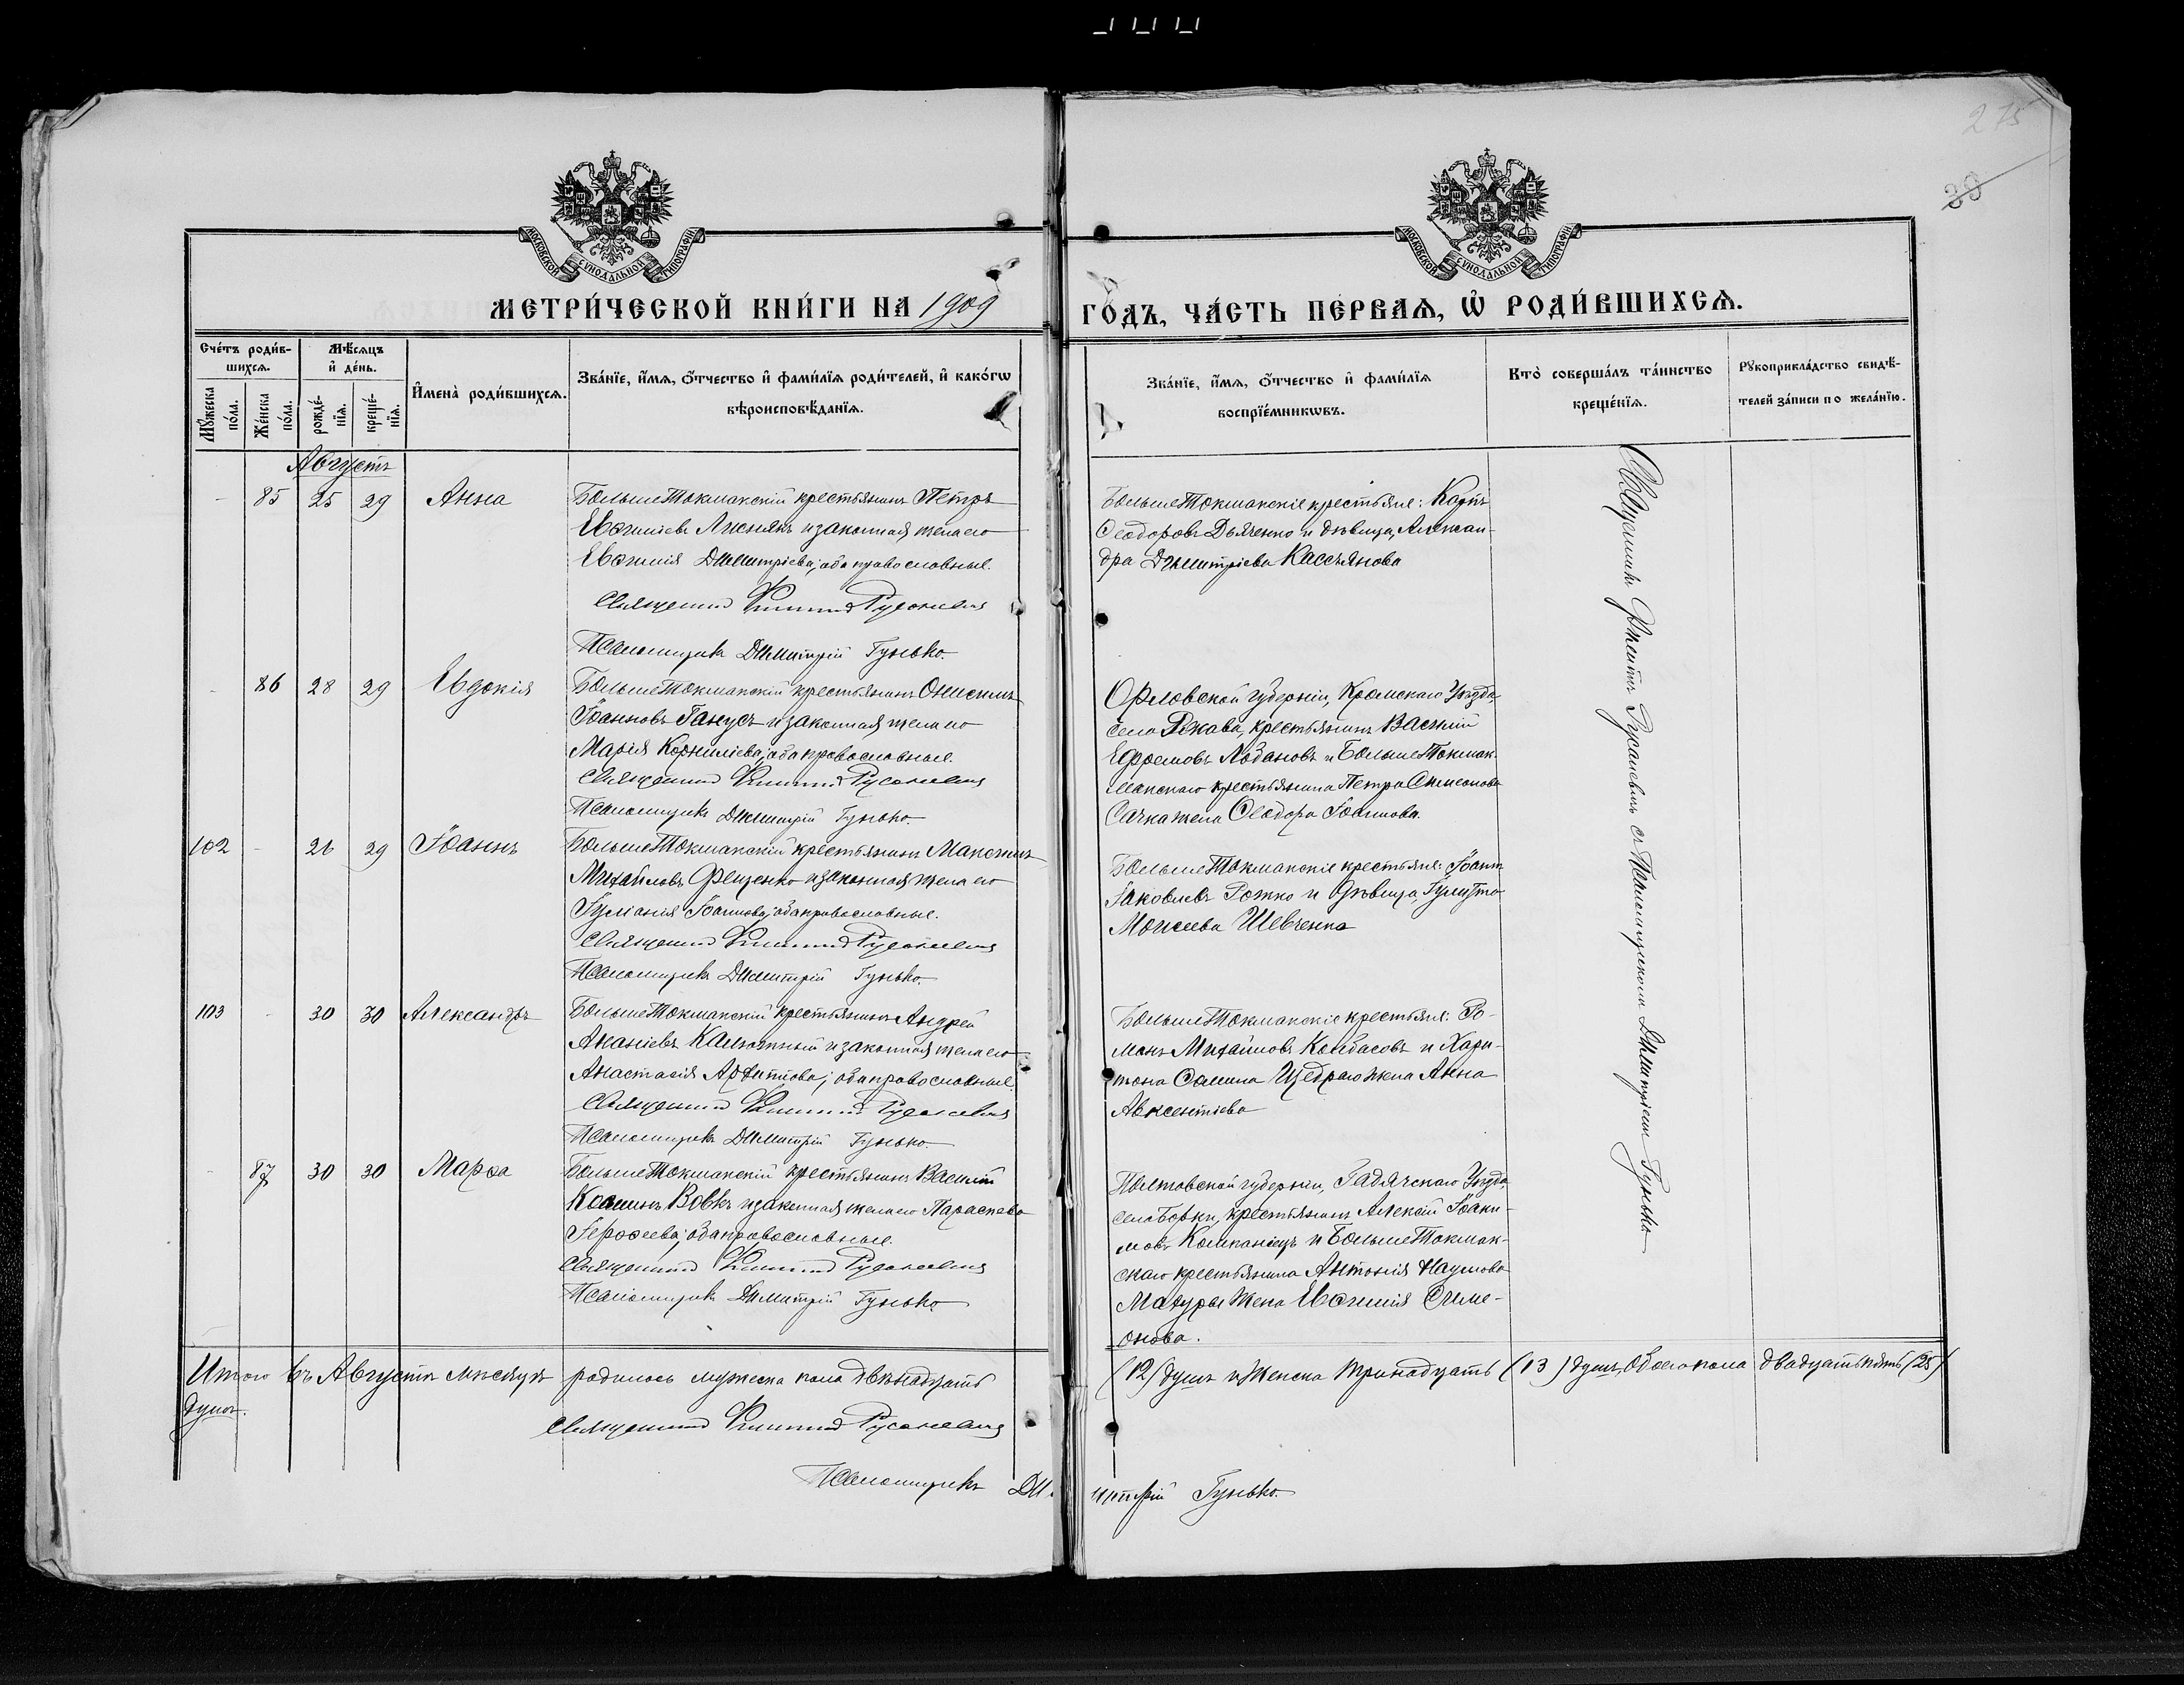 275
30
МОСКОВСКОЙ СѴНОДАЛЬНОЙ ТИПОГРАФІИ
МОСКОВСКОЙ СѴНОДАЛЬНОЙ ТИПОГРАФІИ
МЕТРИ́ЧЕСКОЙ КНИ́ГИ НА 1909
ГО́ДЪ, ЧА́СТЬ ПЕ́РВАѦ, Ѡ҆ РОДИ́ВШИХСѦ.
Сче́тъ роди́в-
шихсѧ.
Мꙋ́жеска по́ла.
Же́нска по́ла.
Мѣ́сѧцъ
и҆ де́нь.
рожде́-
нїѧ.
креще́-
нїѧ.
И҆мена̀ роди́вшихсѧ.
Зва́нїе, и҆́мѧ, ѻ҆́тчество и҆ фами́лїѧ роди́телей, и҆ како́гѡ
вѣроисповѣ́данїѧ.
Зва́нїе, и҆́мѧ, ѻ҆́тчество и҆ фами́лїѧ
воспрїе́мникѡвъ.
Кто̀ соверша́лъ та́инство
креще́нїѧ.
Рꙋкоприкла́дство свидѣ́-
телей за́писи по жела́нїю.
Августъ
- 85 25 29 Анна
БольшеТокмакскій крестьянинъ Петръ
Евѳиміевъ Лисникъ и законная жена его
Евѳимія Димитріева; оба православные.
Священникъ Русаневичъ
Псаломщикъ Димитрій Гунько.
БольшеТокмакскіе крестьяне: Карпъ
Ѳеодоровъ Дьяченко и дѣвица, Алексан-
дра Димитріева Кассьянова
- 86 28 29 Евдокія
БольшеТокмакскій крестьянинъ Онисимъ
Іоанновъ Ганусъ и законная жена его
Марія Корниліева; оба православные.
Священникъ Русаневичъ
Псаломщикъ Димитрій Гунько.
Орловской губерніи, Кромскаго Уѣзда,
села Ржава, крестьянинъ Василій
Ефремовъ Лобановъ и БольшеТокмак-
макскаго крестьянина Петра Симеонова
Сачка жена Ѳеодора Іоаннова.
102 - 26 29 Іоаннъ
БольшеТокмакскій крестьянинъ Максимъ
Михайловъ Фещенко и законная жена его
Іуліанія Іоаннова; оба православные.
Священникъ Русаневичъ
Псаломщикъ Димитрій Гунько.
БольшеТокмакскіе крестьяне: Іоаннъ
Іаковлевъ Рожко и дѣвица, Іулитта
Моисеева Шевченко
103 - 30 30 Александръ
БольшеТокмакскій крестьянинъ Андрей
Ананіевъ Калюжный и законная жена его
Анастасія Архиппова; оба православные.
Священникъ Русаневичъ
Псаломщикъ Димитрій Гунько.
БольшеТокмакскіе крестьяне: Ро-
манъ Михайловъ Колбасовъ и Хари-
тона Савина Щедраго жена Анна
Авксентіева
- 87 30 30 Марѳа
БольшеТокмакскій крестьянинъ Василій
Косминъ Вовкъ и законная жена его Параскева
Іероѳеева; оба православные.
Священникъ Русаневичъ
Псаломщикъ Димитрій Гунько.
Полтавской губерніи, Гадячскаго Уѣзда,
села Борки, крестьянинъ Алексій Іоаки-
мовъ Компаніецъ и БольшеТокмак-
скаго крестьянина Антонія Наумова
Мазуры жена Евѳимія Симе-
онова.
Священникъ Русаневичъ съ Псаломщикомъ Димитріемъ Гунько
Итого въ Августѣ мѣсяцѣ родилось мужеска пола двѣнадцать
(12) душъ и женска тринадцать (13) душъ, обоего пола двадцать пять (25)
душъ.
Священникъ Русаневичъ
Псаломщикъ Димитрій Гунько.